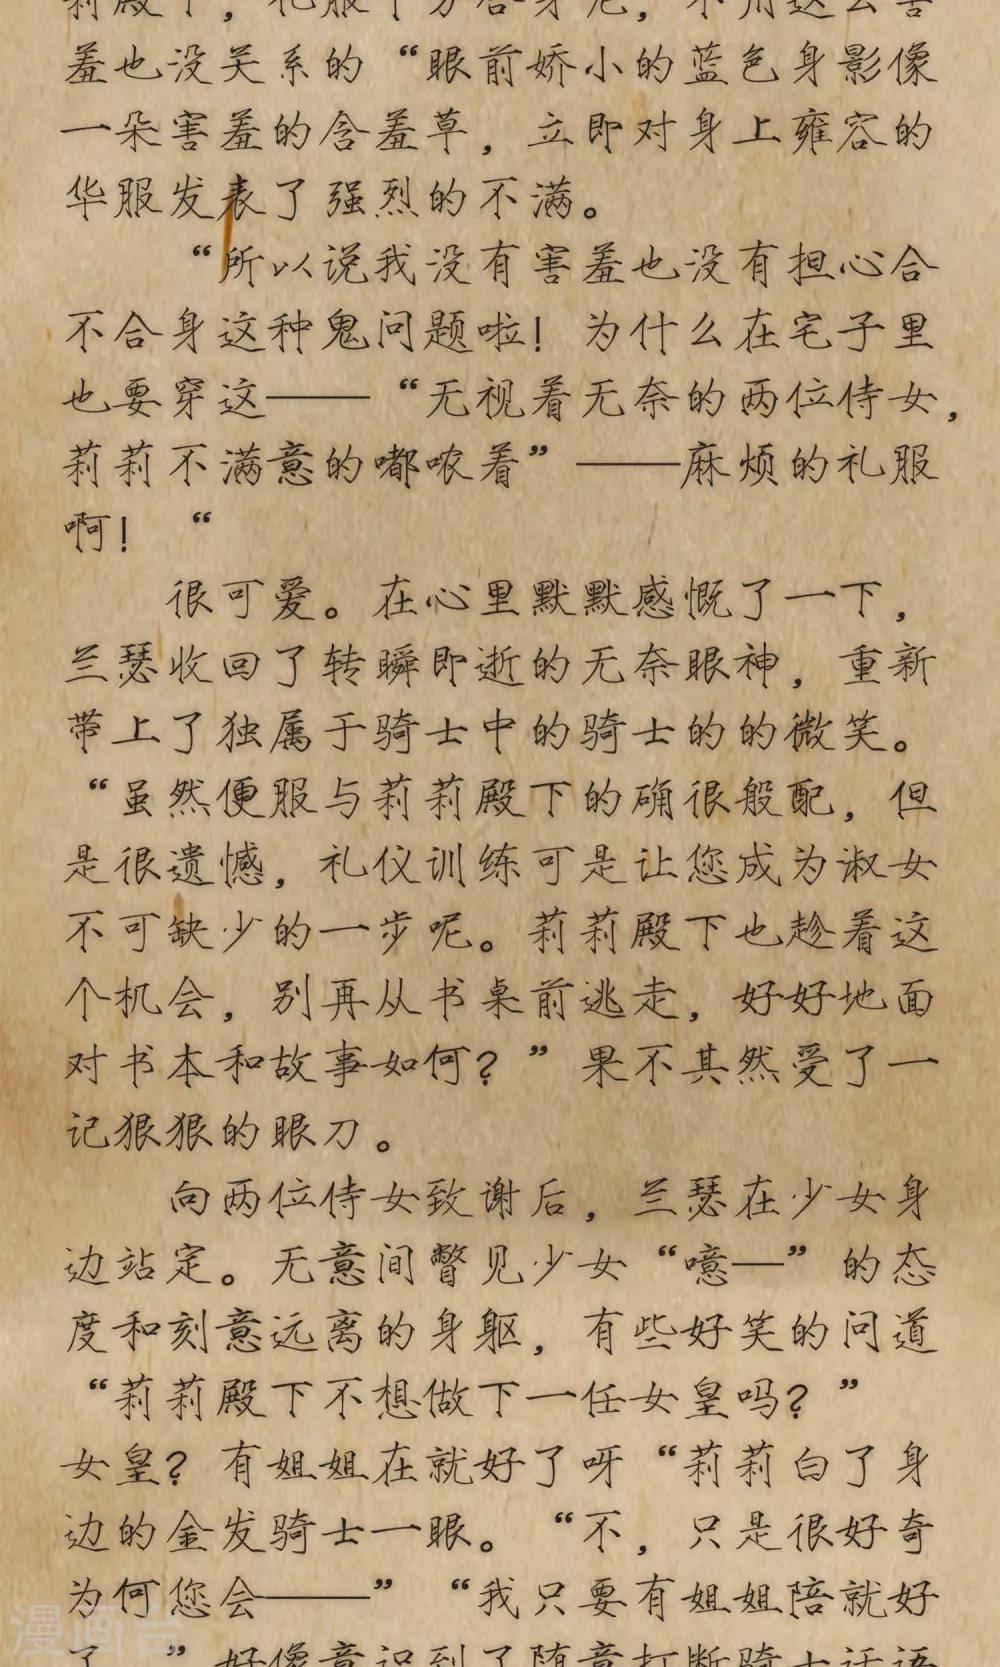 莉殿下，礼服十分合身呢，不用这么害
羞也没关系的“眼前娇小的蓝色身影像
一朵害羞的含羞草，立即对身上雍容的
华服发表了强烈的不满。
“所以说我没有害羞也没有担心合
不合身这种鬼问题啦！为什么在宅子里
也要穿这——“无视着无奈的两位侍女，
莉莉不满意的嘟哝着”——麻烦的礼服
啊！“
很可爱。在心里默默感慨了一下，
兰瑟收回了转瞬即逝的无奈眼神，重新
带上了独属于骑士中的骑士的的微笑。
“虽然便服与莉莉殿下的确很般配，但
是很遗憾，礼仪训练可是让您成为淑女
不可缺少的一步呢。莉莉殿下也趁着这
个机会，别再从书桌前逃走，好好地面
对书本和故事如何？”果不其然受了一
记狠狠的眼刀。
向两位侍女致谢后，兰瑟在少女身
边站定。无意间瞥见少女“噫—”的态
度和刻意远离的身躯，有些好笑的问道
“莉莉殿下不想做下一任女皇吗？”
女皇？有姐姐在就好了呀“莉莉白了身
边的金发骑士一眼。“不，只是很好奇
为何您会——”“我只要有姐姐陪就好
了。”好像意识到了随意打断骑士话语
漫画台